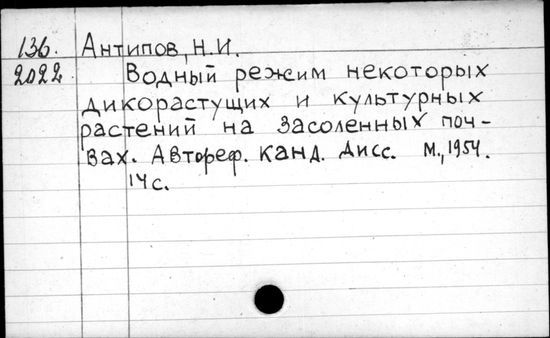 136. Антипов, Н.И.
2022. Водный режим некоторых
дикорастущих и культурных
растений на засоленных поч-
вах. Автореф. канд. дисс. М., 1954.
14 с.